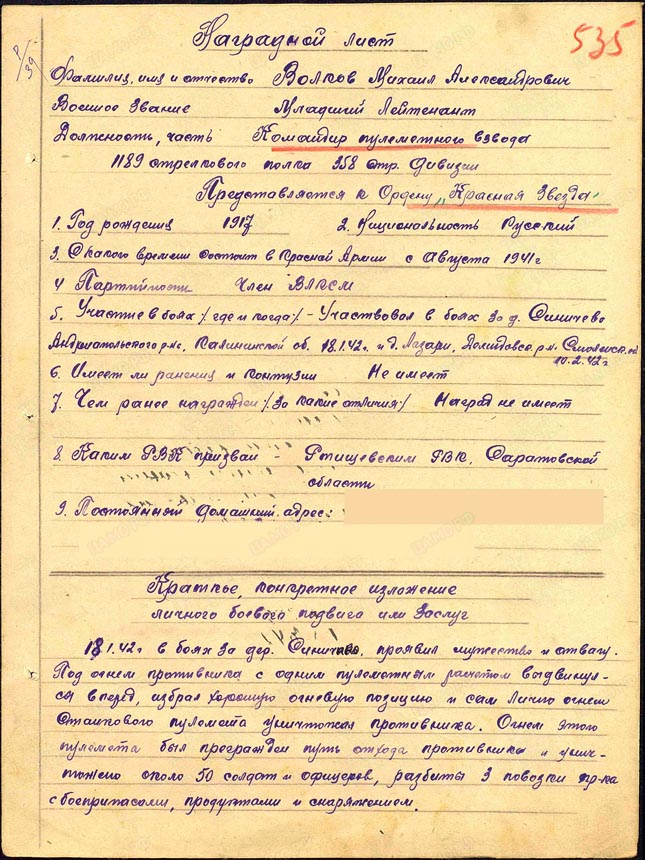 535
Р/39
Наградной лист
Фамилия, имя и отчество Волков Михаил Александрович
Военное Звание Младший Лейтенант
Должность, часть Командир пулеметного взвода
1189 стрелкового полка 358 стр. Дивизии
Представляется к Ордену „Красная Звезда"
1. Год рождения 1917 2. Национальность Русский
3. С какого времени состоит в Красной Армии с Августа 1941г
4 Партийность Член ВЛКСМ
5. Участие в боях /где и когда/ - Участвовал в боях за д. Синичево
Андреапольского р-на, Калининской об. 18.1.42г. и д. Лазари, р-на, Смоленск. об
10.2.42г
6. Имеет ли ранения и контузии Не имеет
7. Чем ранее награжден /За какие отличия/ Наград не имеет
8. Каким РВК призван - Ртищевским РВК, Саратовской
области
9. Постоянный домашний адрес:
Краткое, конкретное изложение
личного боевого подвига или Заслуг
18.1.42г в боях за дер. Синичево, проявил мужество и отвагу.
Под огнем противника с одним пулеметным расчетом выдвинул-
ся вперед, избрал хорошую огневую позицию и сам лично огнем
Станкового пулемета уничтожал противника. Огнем этого
пулемета был прегражден путь отхода противника и унич-
тожено около 50 солдат и офицеров, разбиты 3 повозки пр-ка
с боеприпасами, продуктами и снаряжением.